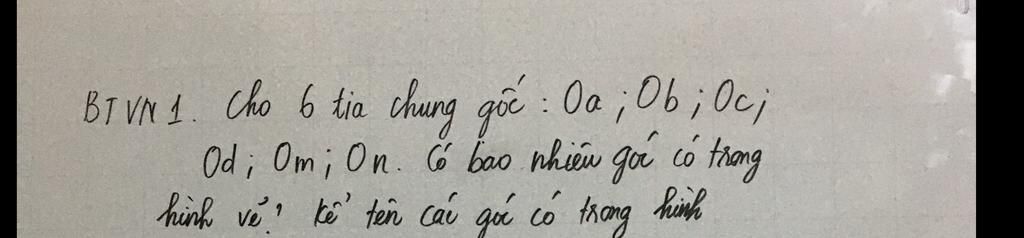 BTVN 1. Cho 6 tia chung gốc : Oa ; Ob ; Oc ;
Od ; Om ; On. Có bao nhiêu góc có trong
hình vẽ? Kể tên các góc có trong hình